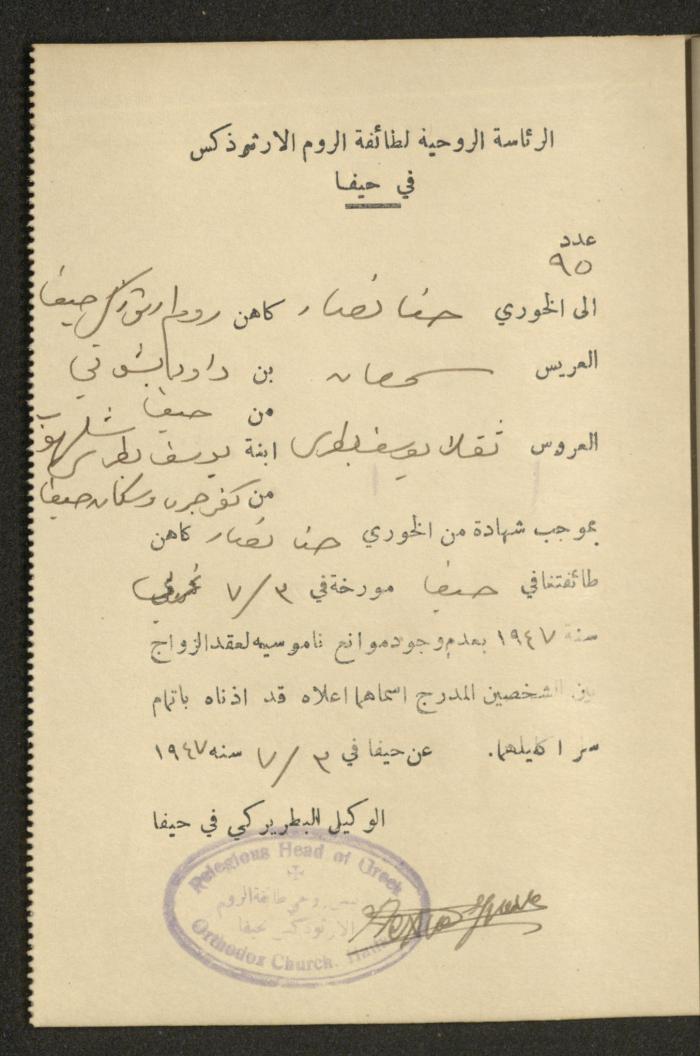 الرئاسة الروحية لطائفة الروم الارثوذكس
في حيفا
عدد
٩٥
الى الخوري حنا نصار كاهن روم ارثوذكس حيفا
العريس سمعان بن داود
من حيفا
العروس تقلا يوسف بطرس ابنة يوسف بطرس
من وسكان حيفا
بموجب شهادة من الخوري حنا نصار كاهن
طائفتنا في حيفا مورخة في ٧/٣
سنة ١٩٤٧ بعدم وجود موانع ناموسيه لعقد الزواج
بين الشخصين المدرج اسماهما اعلاه قد اذناه باتمام
سر اكليلهما. عن حيفا في ٧/٣ سنه ١٩٤٧
الوكيل البطريركي في حيفا
Relegious Head of Greek
روحي طائفة الروم
الارثوذكس بحيفا
Orthodox Church. Haifa